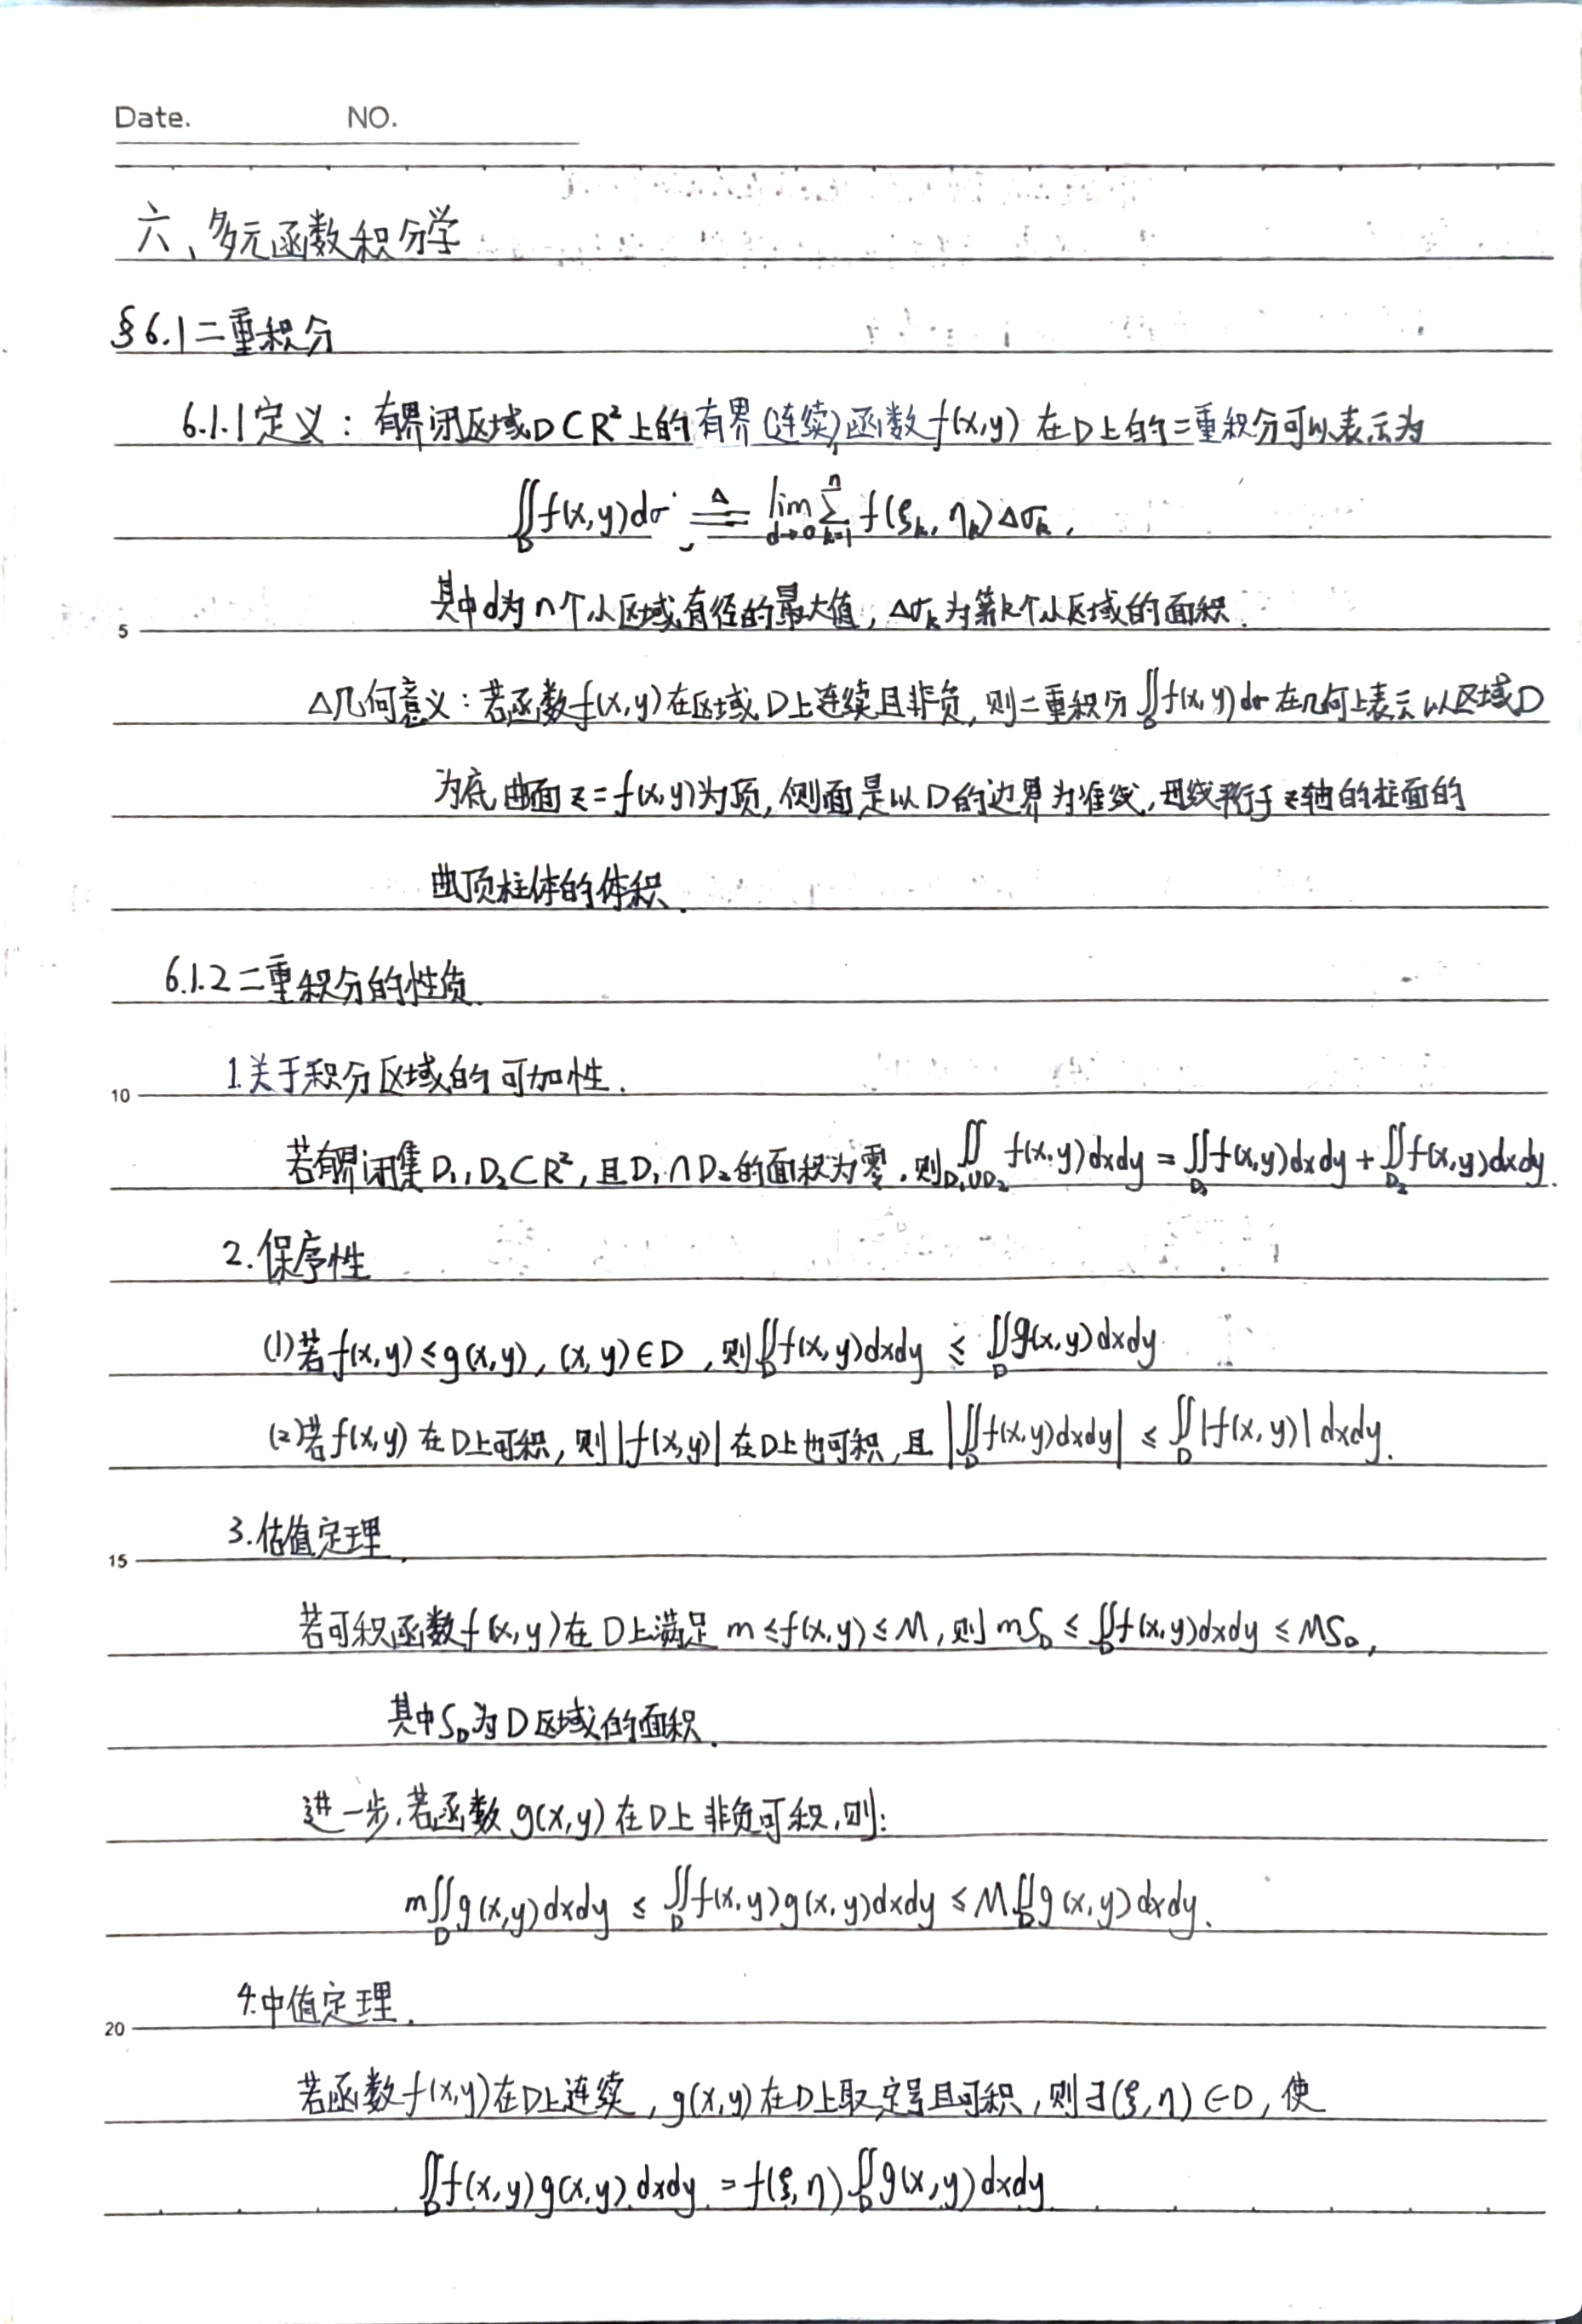 Date. NO.
六、多元函数积分学
§6.1 二重积分
6.1.1 定义：有界闭区域D⊂R²上的有界(连续)函数f(x,y)在D上的二重积分可以表示为
∬_D f(x,y)dσ ≜ lim_{d→0} ∑_{k=1}^{n} f(ξ_k, η_k)Δσ_k ,
其中d为n个小区域直径的最大值, Δσ_k为第k个小区域的面积.
5
△几何意义：若函数f(x,y)在区域D上连续且非负, 则二重积分∬_D f(x,y)dσ在几何上表示以区域D
为底, 曲面z=f(x,y)为顶, 侧面是以D的边界为准线, 母线平行于z轴的柱面的
曲顶柱体的体积.
6.1.2 二重积分的性质
1.关于积分区域的可加性.
10
若有界闭集D₁,D₂⊂R², 且D₁∩D₂的面积为零, 则∬_{D₁∪D₂} f(x,y)dxdy = ∬_{D₁} f(x,y)dxdy + ∬_{D₂} f(x,y)dxdy.
2.保序性
(1)若f(x,y)≤g(x,y), (x,y)∈D, 则∬_D f(x,y)dxdy ≤ ∬_D g(x,y)dxdy
(2)若f(x,y)在D上可积, 则|f(x,y)|在D上也可积, 且|∬_D f(x,y)dxdy| ≤ ∬_D |f(x,y)|dxdy.
3.估值定理.
15
若可积函数f(x,y)在D上满足m≤f(x,y)≤M, 则mS_D ≤ ∬_D f(x,y)dxdy ≤ MS_D,
其中S_D为D区域的面积.
进一步, 若函数g(x,y)在D上非负可积, 则:
m∬_D g(x,y)dxdy ≤ ∬_D f(x,y)g(x,y)dxdy ≤ M∬_D g(x,y)dxdy.
4.中值定理.
20
若函数f(x,y)在D上连续, g(x,y)在D上取定号且可积, 则∃(ξ,η)∈D, 使
∬_D f(x,y)g(x,y)dxdy = f(ξ,η)∬_D g(x,y)dxdy